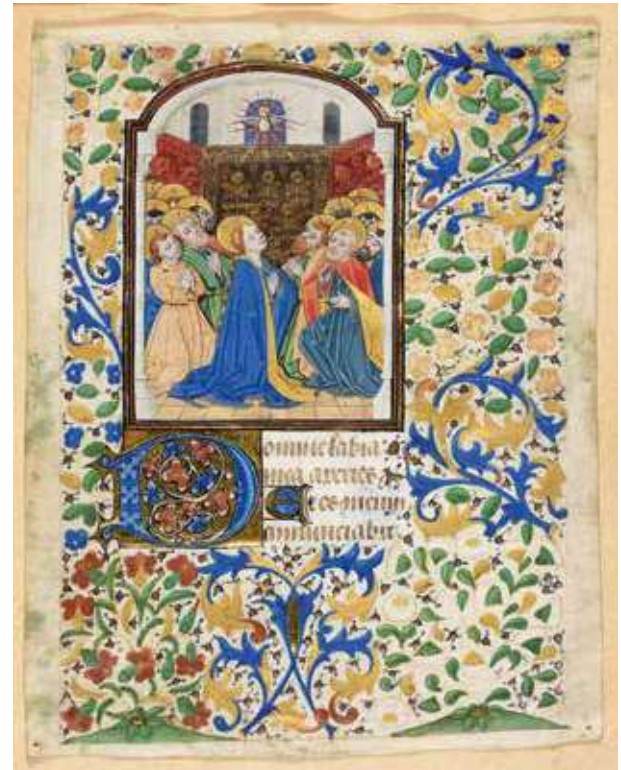 Domine labia
mea aperies &
Et os meum
annunciabit.